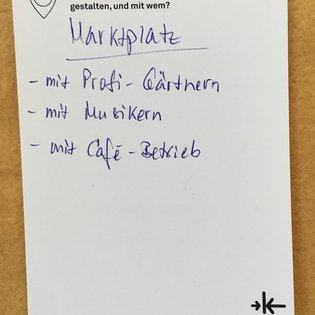 gestalten, und mit wem?
Marktplatz
- mit Profi-Gärtnern
- mit Musikern
- mit Café-Betrieb